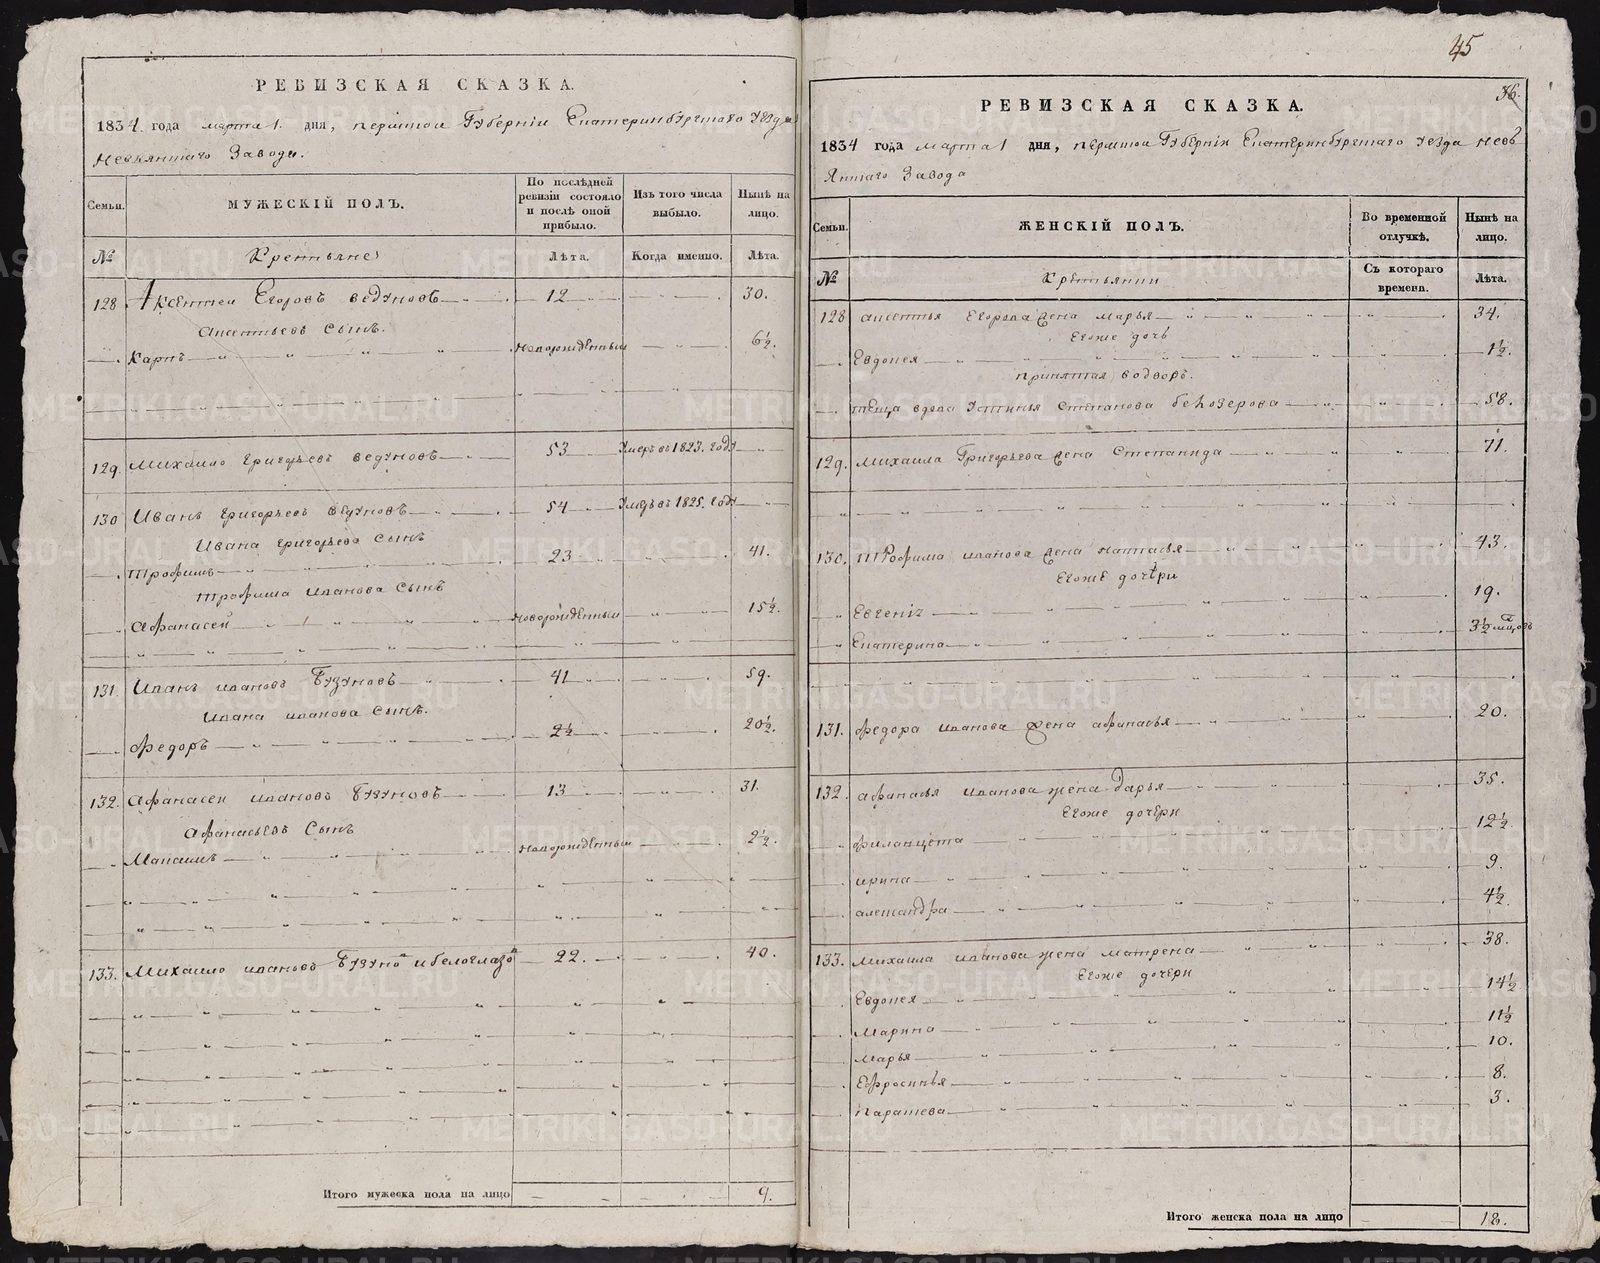 РЕВИЗСКАЯ СКАЗКА.
1834. года марта 1. дня, пермской Губерніи Екатеринбургскаго Уезда
Невьянскаго Завода.
Семьи. МУЖЕСКІЙ ПОЛЪ. По послѣдней ревизіи состояло и послѣ оной прибыло. Изъ того числа выбыло. Нынѣ на лицо.
№ Крестьяне Лѣта. Когда именно. Лѣта.
128 Аксентеи Егоровъ ведуновъ 12 30.
Аксентьевъ Сынъ.
Карпъ Новорожденный 6½.
129. Михаило григорьевъ ведуновъ 53 Умеръ въ 1823. году
130 Иванъ григорьевъ ведуновъ 54 Умеръ въ 1825. году
Ивана григорьева Сынъ
Трофимъ 23 41.
Трофима иванова Сынъ
Афанасей Новорожденный 15½.
131. Иванъ ивановъ Бузуновъ 41 59.
Ивана иванова Сынъ.
Федоръ 2½ 20½.
132. Афанасеи ивановъ Бузуновъ 13 31.
Афанасьевъ Сынъ
Максимъ Новорожденный 2½.
133. Михаило ивановъ Бузуновъ и белоглазовъ 22. 40.
Итого мужеска пола на лицо 9.
45
36.
РЕВИЗСКАЯ СКАЗКА.
1834 года марта 1 дня, пермской Губерніи Екатеринбургскаго Уезда Невь
Янскаго Завода
Семьи. ЖЕНСКІЙ ПОЛЪ. Во временной отлучкѣ. Нынѣ на лицо.
№ Крестьянки Съ котораго времени. Лѣта.
128 аксентья Егорова жена марья 34.
Егоже дочь
Евдокея 1½.
принятая водворъ.
теща вдова Устинья степанова белозерова 58.
129. Михаила Григорьева жена Степанида 71.
130. Трофима иванова жена наталья 43.
Егоже дочери
Евгенія 19.
Екатерина 3½ месяцовъ
131. Федора иванова жена афанасья 20.
132. афанасья иванова жена дарья 35.
Егоже дочери
филанцета 12½.
ирина 9.
александра 4½.
133. Михаила иванова жена матрена 38.
Егоже дочери
Евдокея 14½
Марина 11½
марья 10.
Ефросинья 8.
парасковья 3.
Итого женска пола на лицо 18.
METRIKI.GASO-URAL.RU